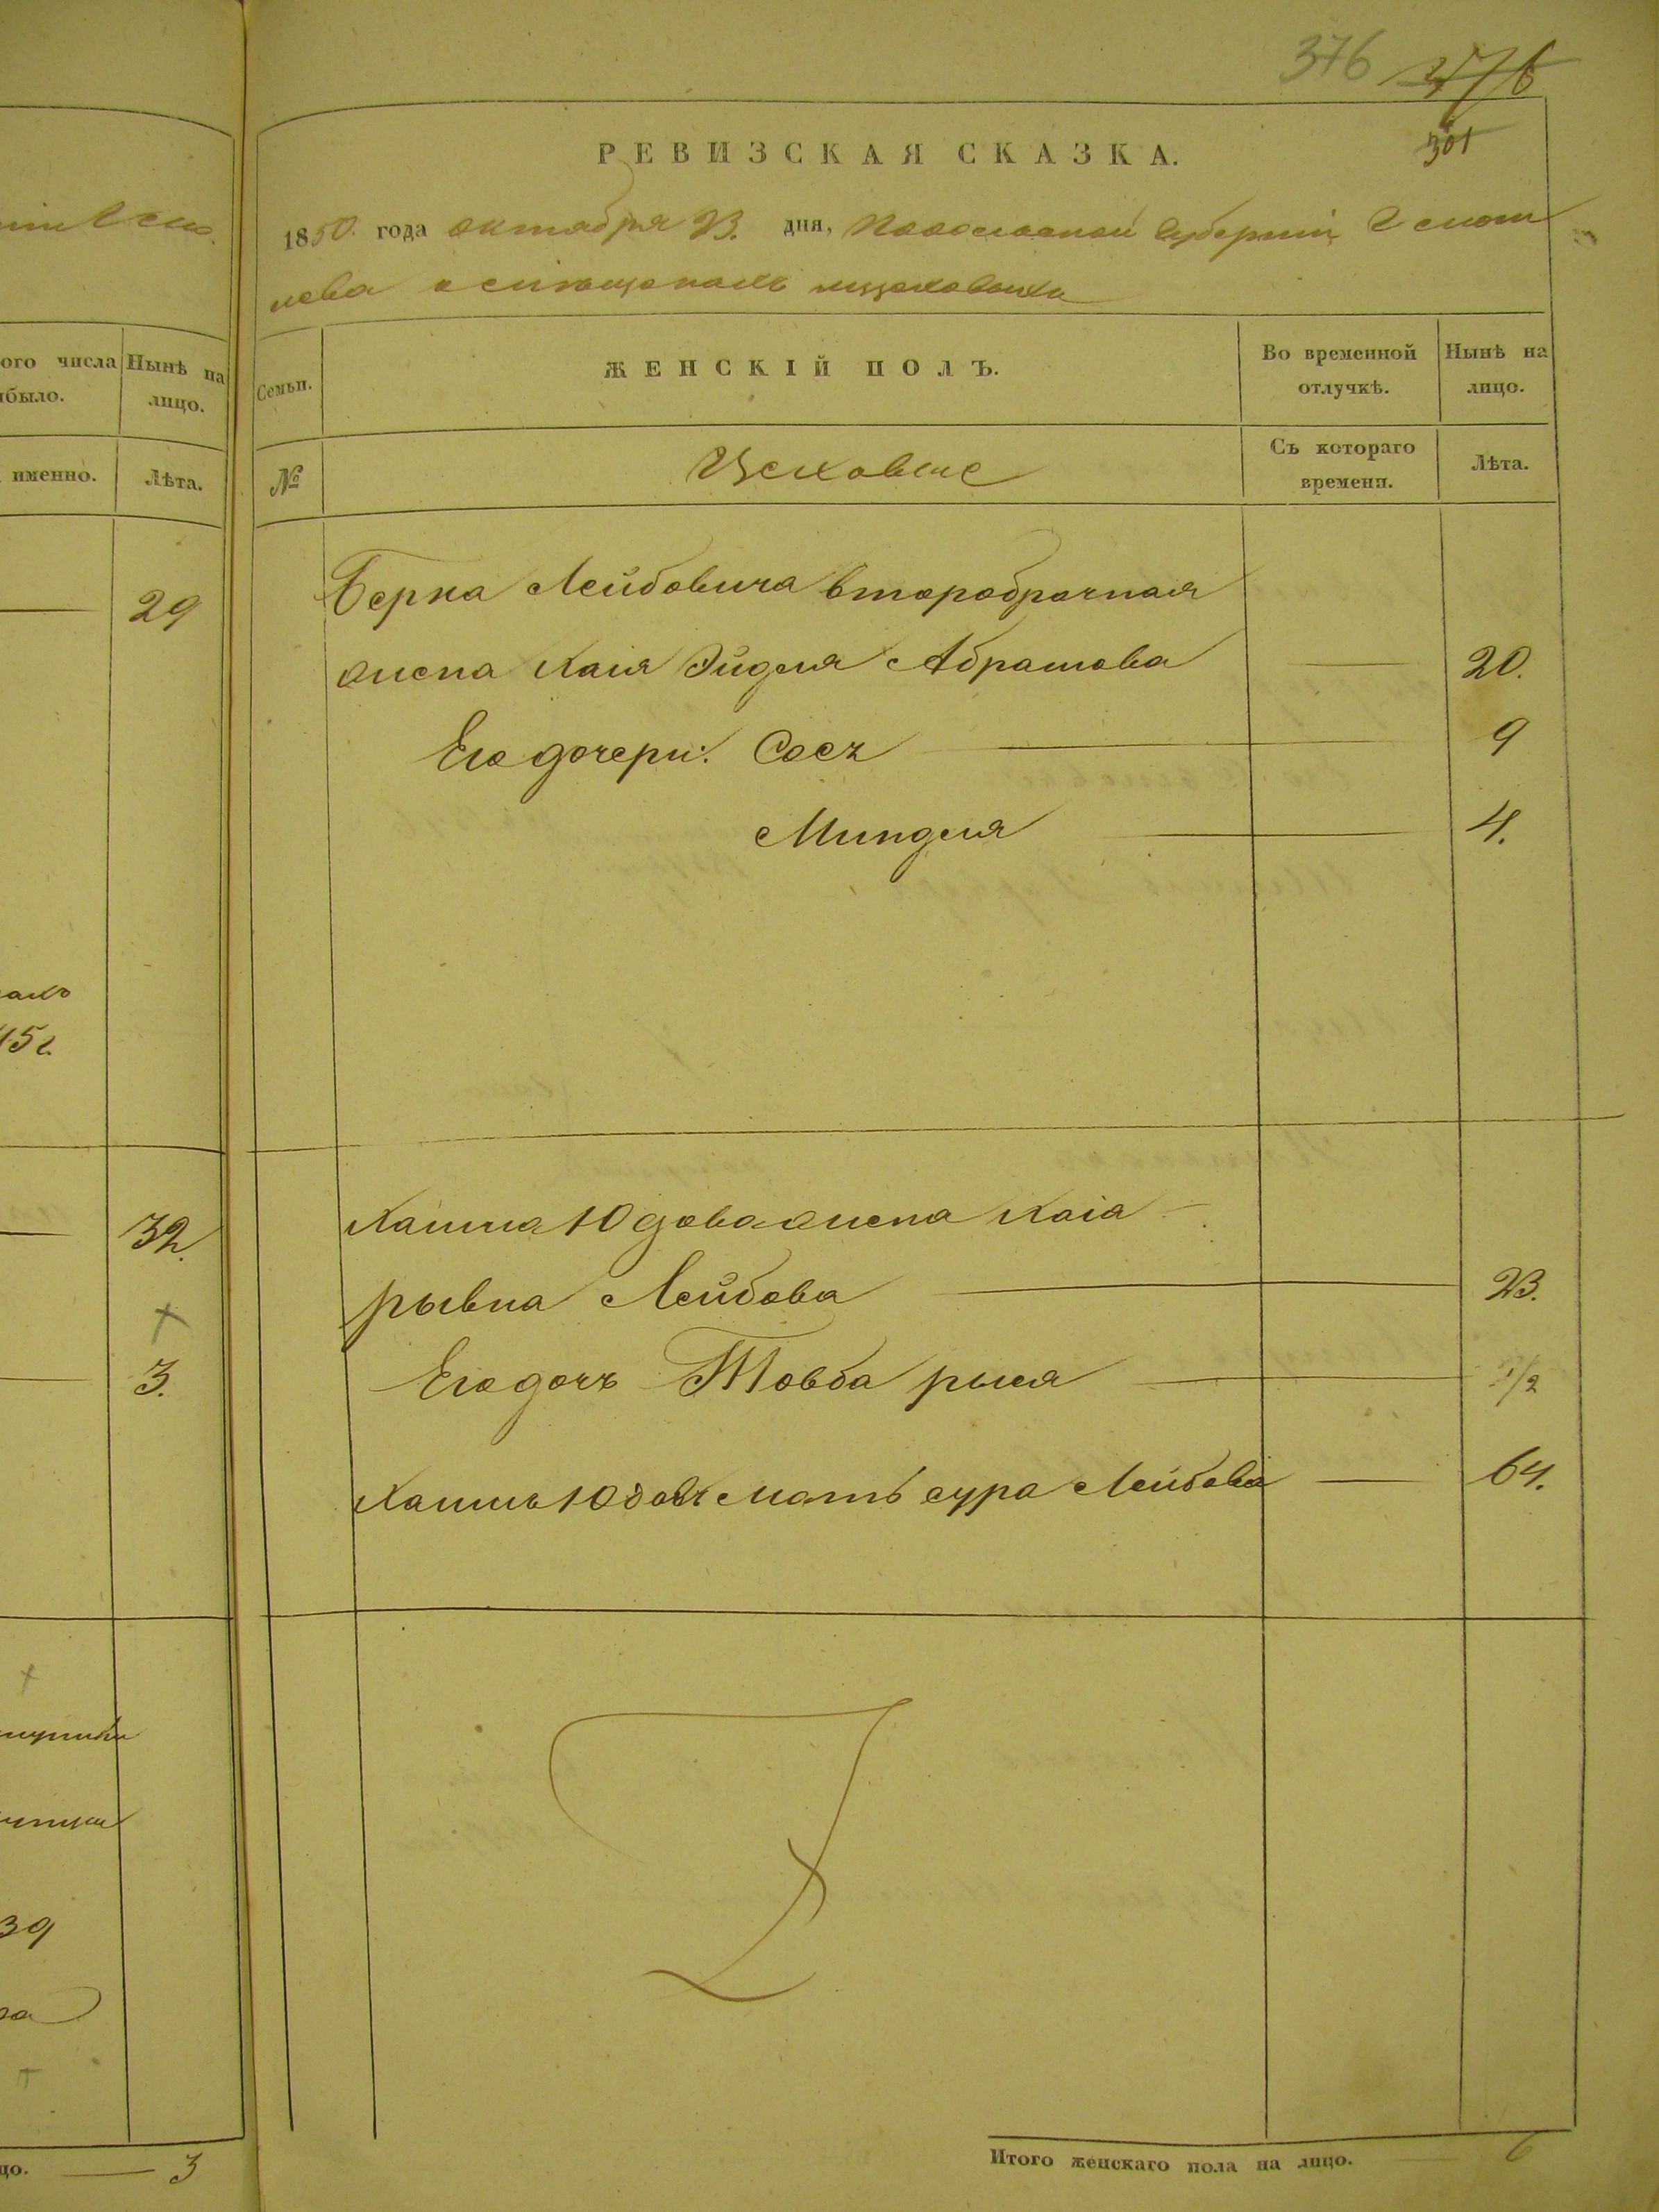 376 276
301
РЕВИЗСКАЯ СКАЗКА.
1850. года октября 23. дня, Подольской Губерніи
о мѣщанахъ
ого числа
было.
Нынѣ на
лицо.
именно.
Лѣта.
29
45 г.
32.
3.
39
цо. 3
Семьи.
ЖЕНСКІЙ ПОЛЪ.
Во временной
отлучкѣ.
Нынѣ на
лицо.
№
Цеховые
Съ котораго
времени.
Лѣта.
Берка Лейбовича второбрачная
жена Хаія Эйдля Абрамова 20.
Его дочери: Сося 9
Миндля 4.
Хаима Юдова жена Хаіа
рывка Лейбова 23.
Его дочь Товба рыся 1/2
Хаима Юдов. мать сура Лейбова 64.
Итого женскаго пола на лицо. 6